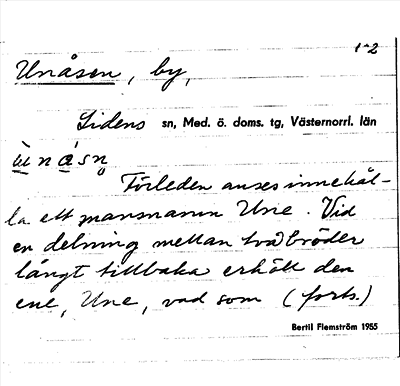 1-2
Unåsen, by,
Lidens sn, Med. ö. doms. tg, Västernorrl. län
ù̀násn̥
Förleden anses innehål-
la ett mansnamn Une. Vid
en delning mellan två bröder
långt tillbaka erhöll den
ene, Une, vad som (forts.)
Bertil Flemström 1955